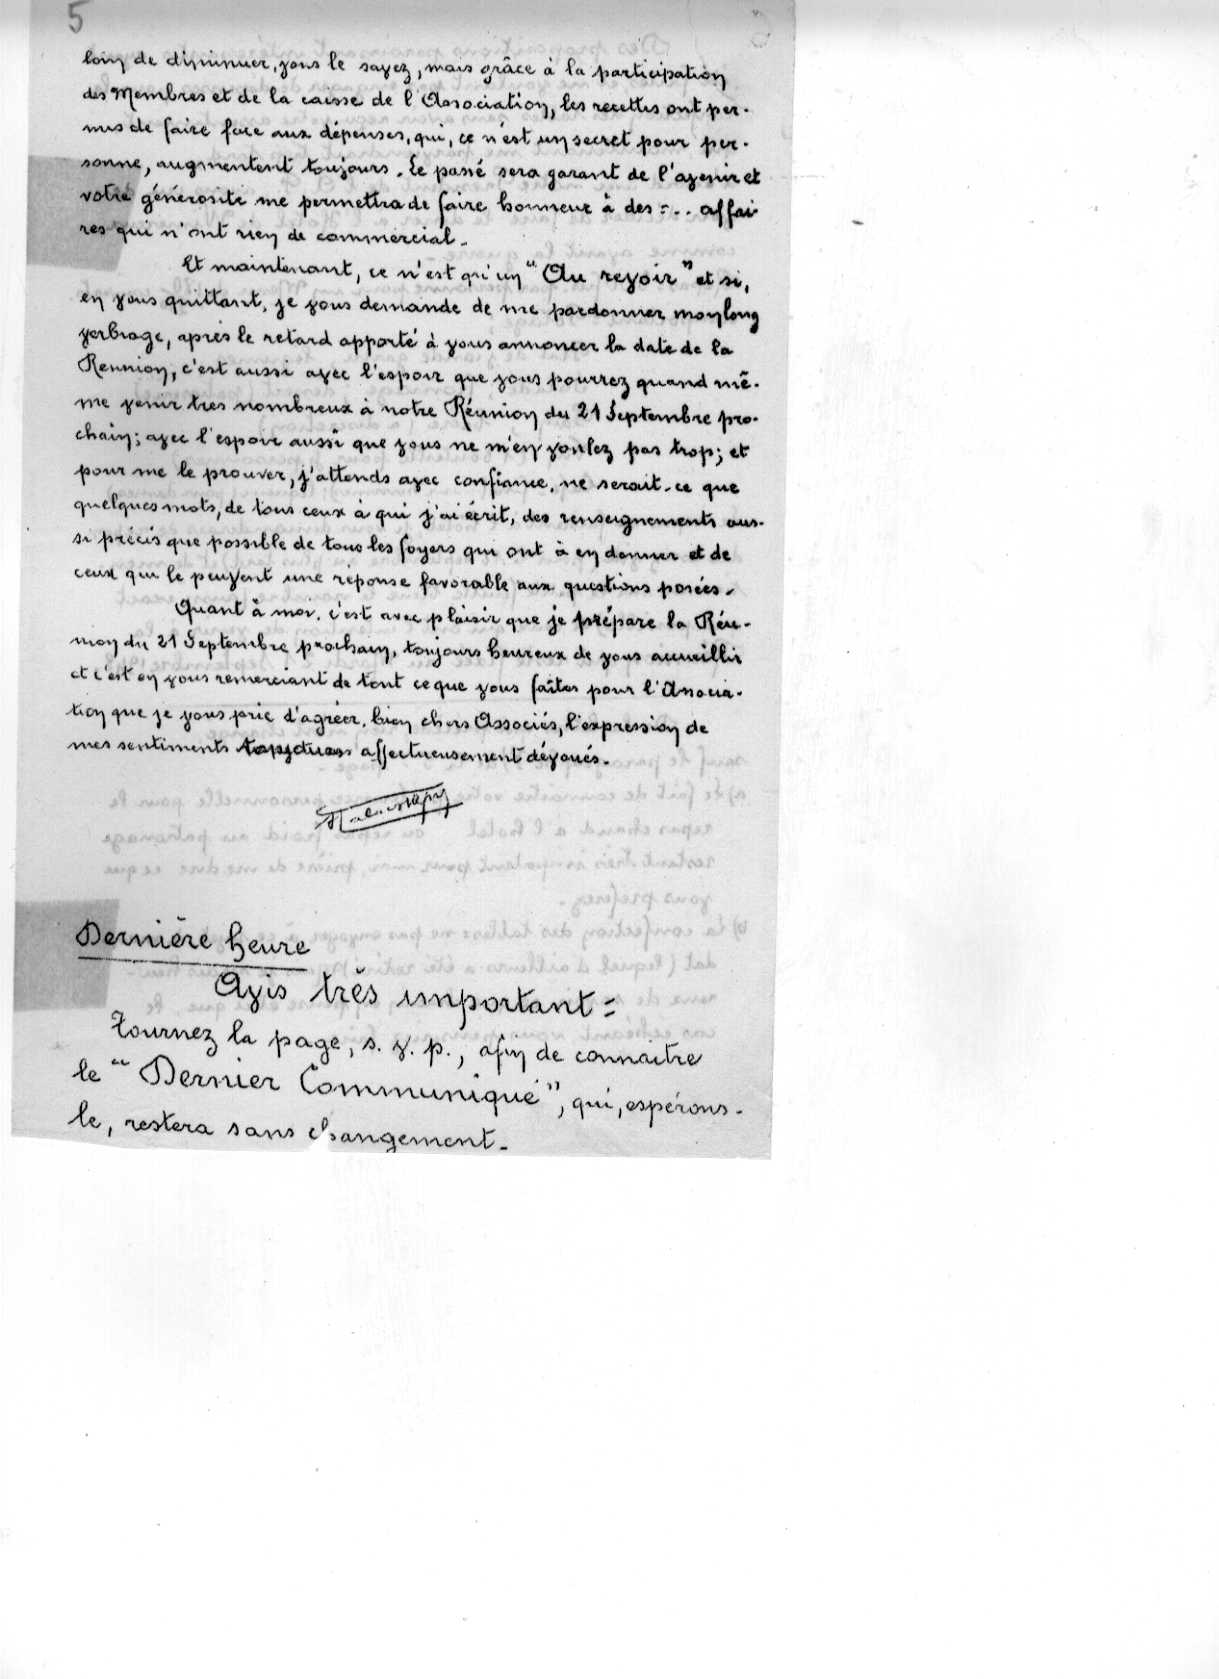 5
loin de diminuer, vous le savez, mais grâce à la participation
des Membres et de la caisse de l'Association, les recettes ont per-
mis de faire face aux dépenses, qui, ce n'est un secret pour per-
sonne, augmentent toujours. Le passé sera garant de l'avenir et
votre générosité me permettra de faire honneur à des =.. affai-
res qui n'ont rien de commercial.
Et maintenant, ce n'est qu'un "Au revoir" et si,
en vous quittant, je vous demande de me pardonner mon long
verbiage, après le retard apporté à vous annoncer la date de la
Réunion, c'est aussi avec l'espoir que vous pourrez quand mê-
me venir très nombreux à notre Réunion du 21 Septembre pro-
chain; avec l'espoir aussi que vous ne m'en voulez pas trop; et
pour me le prouver, j'attends avec confiance, ne serait-ce que
quelques mots, de tous ceux à qui j'ai écrit, des renseignements aus-
si précis que possible de tous les foyers qui ont à en donner et de
ceux qui le peuvent une réponse favorable aux questions posées.
Quant à moi, c'est avec plaisir que je prépare la Réu-
nion du 21 Septembre prochain, toujours heureux de vous accueillir
et c'est en vous remerciant de tout ce que vous faites pour l'Associa-
tion que je vous prie d'agréer, bien chers Associés, l'expression de
mes sentiments toujours affectueusement dévoués.
Dernière heure
Avis très important =
Tournez la page, s. v. p., afin de connaitre
le "Dernier Communiqué", qui, espérons-
le, restera sans changement.